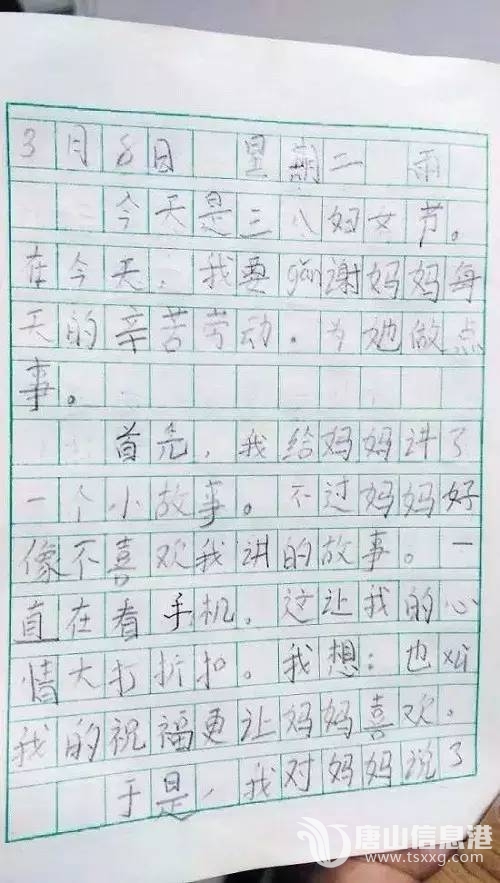 3月8日 星期二 雨
今天是三八妇女节。
在今天，我要gǎn谢妈妈每
天的辛苦劳动．为她做点
事。
首先，我给妈妈讲了
一个小故事。不过妈妈好
像不喜欢我讲的故事。一
直在看手机．这让我的心
情大打折扣。我想：也xǔ
我的祝福更让妈妈喜欢。
于是，我对妈妈说了
唐山信息港
www.tsxxg.com